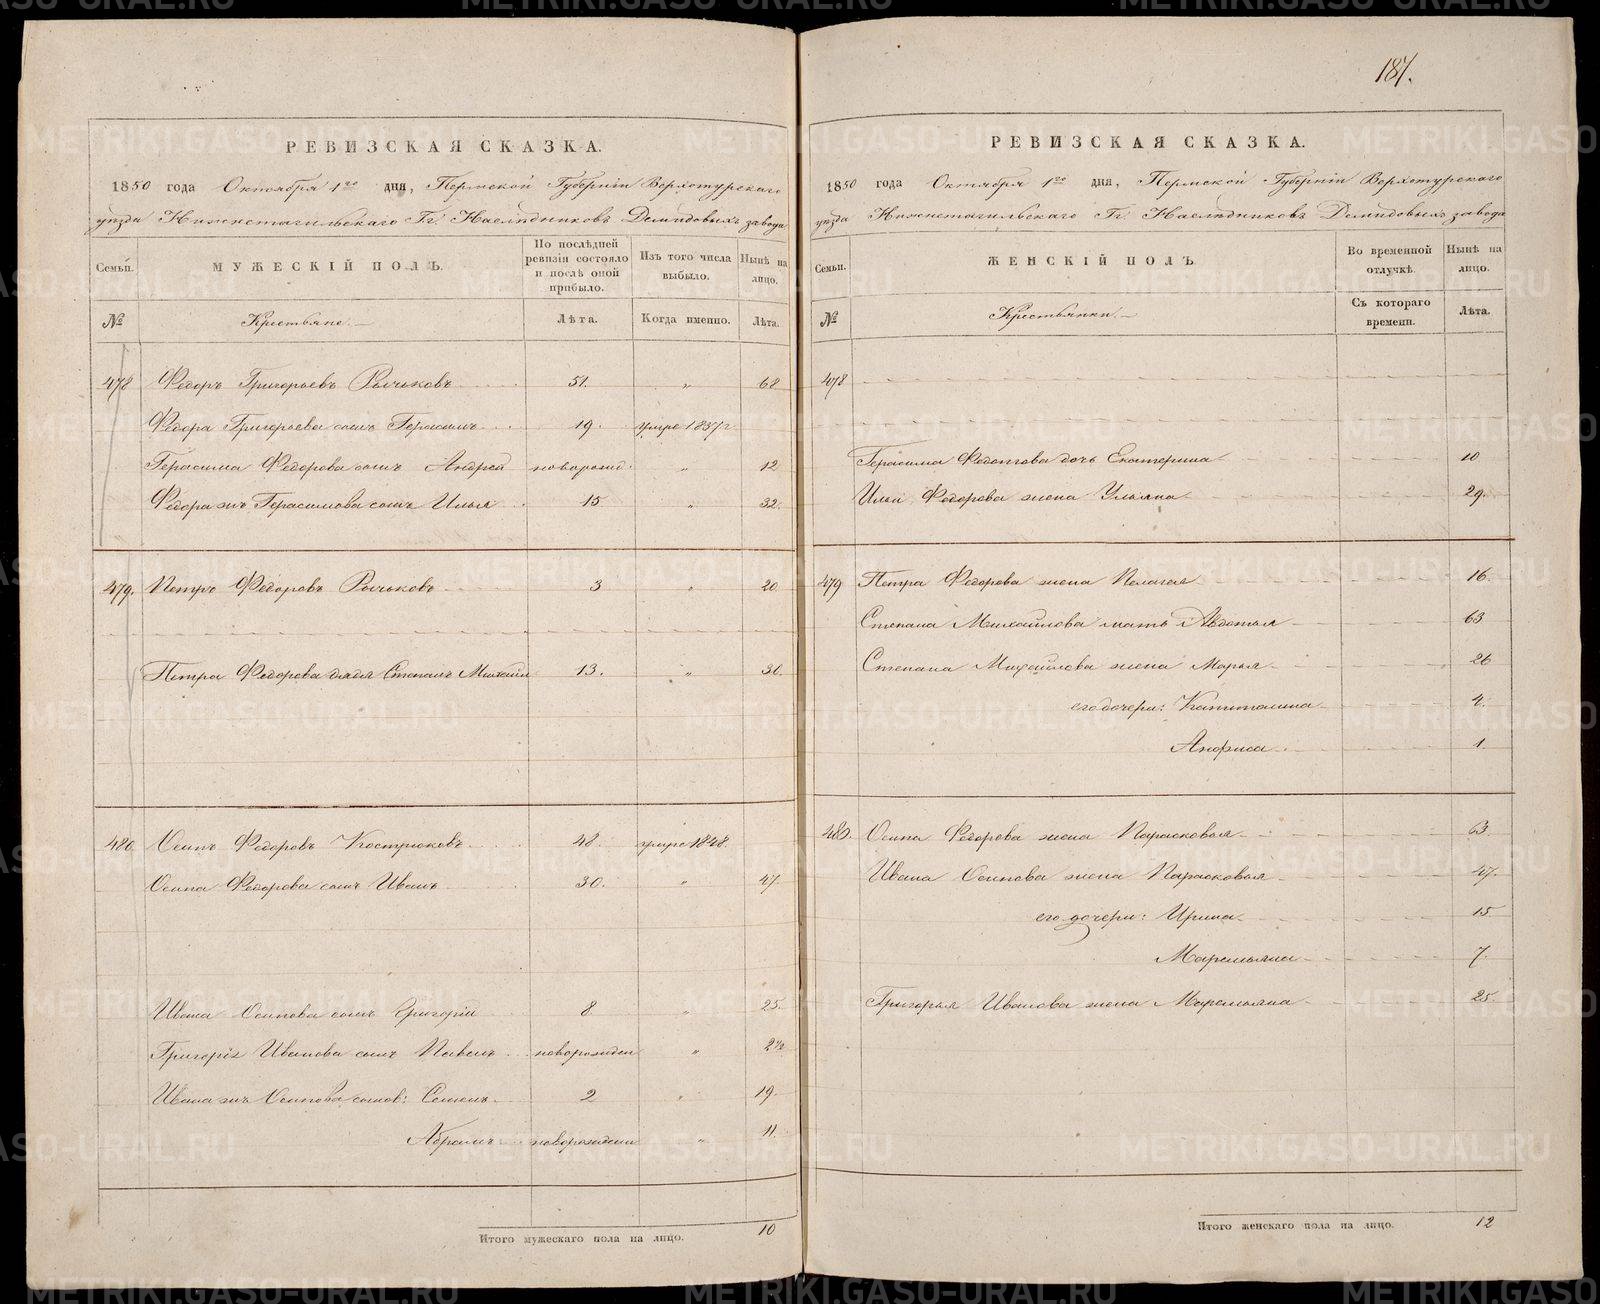 РЕВИЗСКАЯ СКАЗКА.
1850 года Октября 1го дня, Пермской Губерніи Верхотурскаго
уѣзда Нижнетагильскаго Гг. Наслѣдниковъ Демидовыхъ завода
Семьи.
МУЖЕСКІЙ ПОЛЪ.
По послѣдней ревизіи состояло и послѣ оной прибыло.
Изъ того числа выбыло.
Нынѣ на лицо.
№
Крестьяне.
Лѣта.
Когда именно.
Лѣта.
478 Федоръ Григорьевъ Рычьковъ 51. " 68
Федора Григорьева сынъ Герасимъ 19. умре 1837г
Герасима Федорова сынъ Андрей новорожд. " 12
Федора жъ Герасимова сынъ Илья 15 " 32.
479. Петръ Федоровъ Рычьковъ 3 " 20.
Петра Федорова дядя Степанъ Михайл 13. " 30.
480 Осипъ Федоровъ Кострюковъ 48. умре 1848.
Осипа Федорова сынъ Иванъ 30. " 47.
Ивана Осипова сынъ Григорій 8 " 25.
Григорія Иванова сынъ Павелъ новорожден " 2 1/2
Ивана жъ Осипова сынов: Семенъ 2 " 19.
Абрамъ новорожден " 11.
Итого мужескаго пола на лицо. 10
187.
РЕВИЗСКАЯ СКАЗКА.
1850 года Октября 1го дня, Пермской Губерніи Верхотурскаго
уѣзда Нижнетагильскаго Гг. Наслѣдниковъ Демидовыхъ завода
Семьи.
ЖЕНСКІЙ ПОЛЪ
Во временной отлучкѣ.
Нынѣ на лицо.
№
Крестьянки.
Съ котораго времени.
Лѣта.
478
Герасима Федорова дочь Екатерина 10
Ильи Федорова жена Ульяна 29.
479 Петра Федорова жена Пелагея 16.
Степана Михайлова мать Авдотья 63
Степана Михайлова жена Марья 26
его дочери: Капитолина 4.
Анфиса 1.
480. Осипа Федорова жена Парасковья 63
Ивана Осипова жена Парасковья 47.
его дочери: Ирина 15
Маремьяна 7.
Григорья Иванова жена Маремьяна 25
Итого женскаго пола на лицо. 12
METRIKI.GASO-URAL.RU